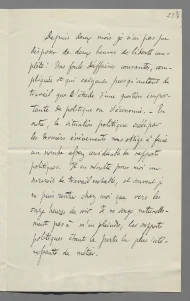 Depuis deux mois je n'ai pas pu
disposer de deux heures de liberté com-
plète : Une foule d'affaires courantes, com-
pliquées et qui exigent presqu'autant de
travail que l'étude d'une question impor-
tante de politique ou d'économie. – En
outre, la situation politique
les derniers événements nous oblige à faire
un nombre de rapports
politiques. Il en résulte pour moi un
surcroît de travail notable, et souvent je
ne puis rentrer chez moi que vers les
onze heures du soir. Je ne songe naturelle-
ment pas à m'en plaindre, les rapports
politiques étant la partie la plus inté-
ressante du métier.